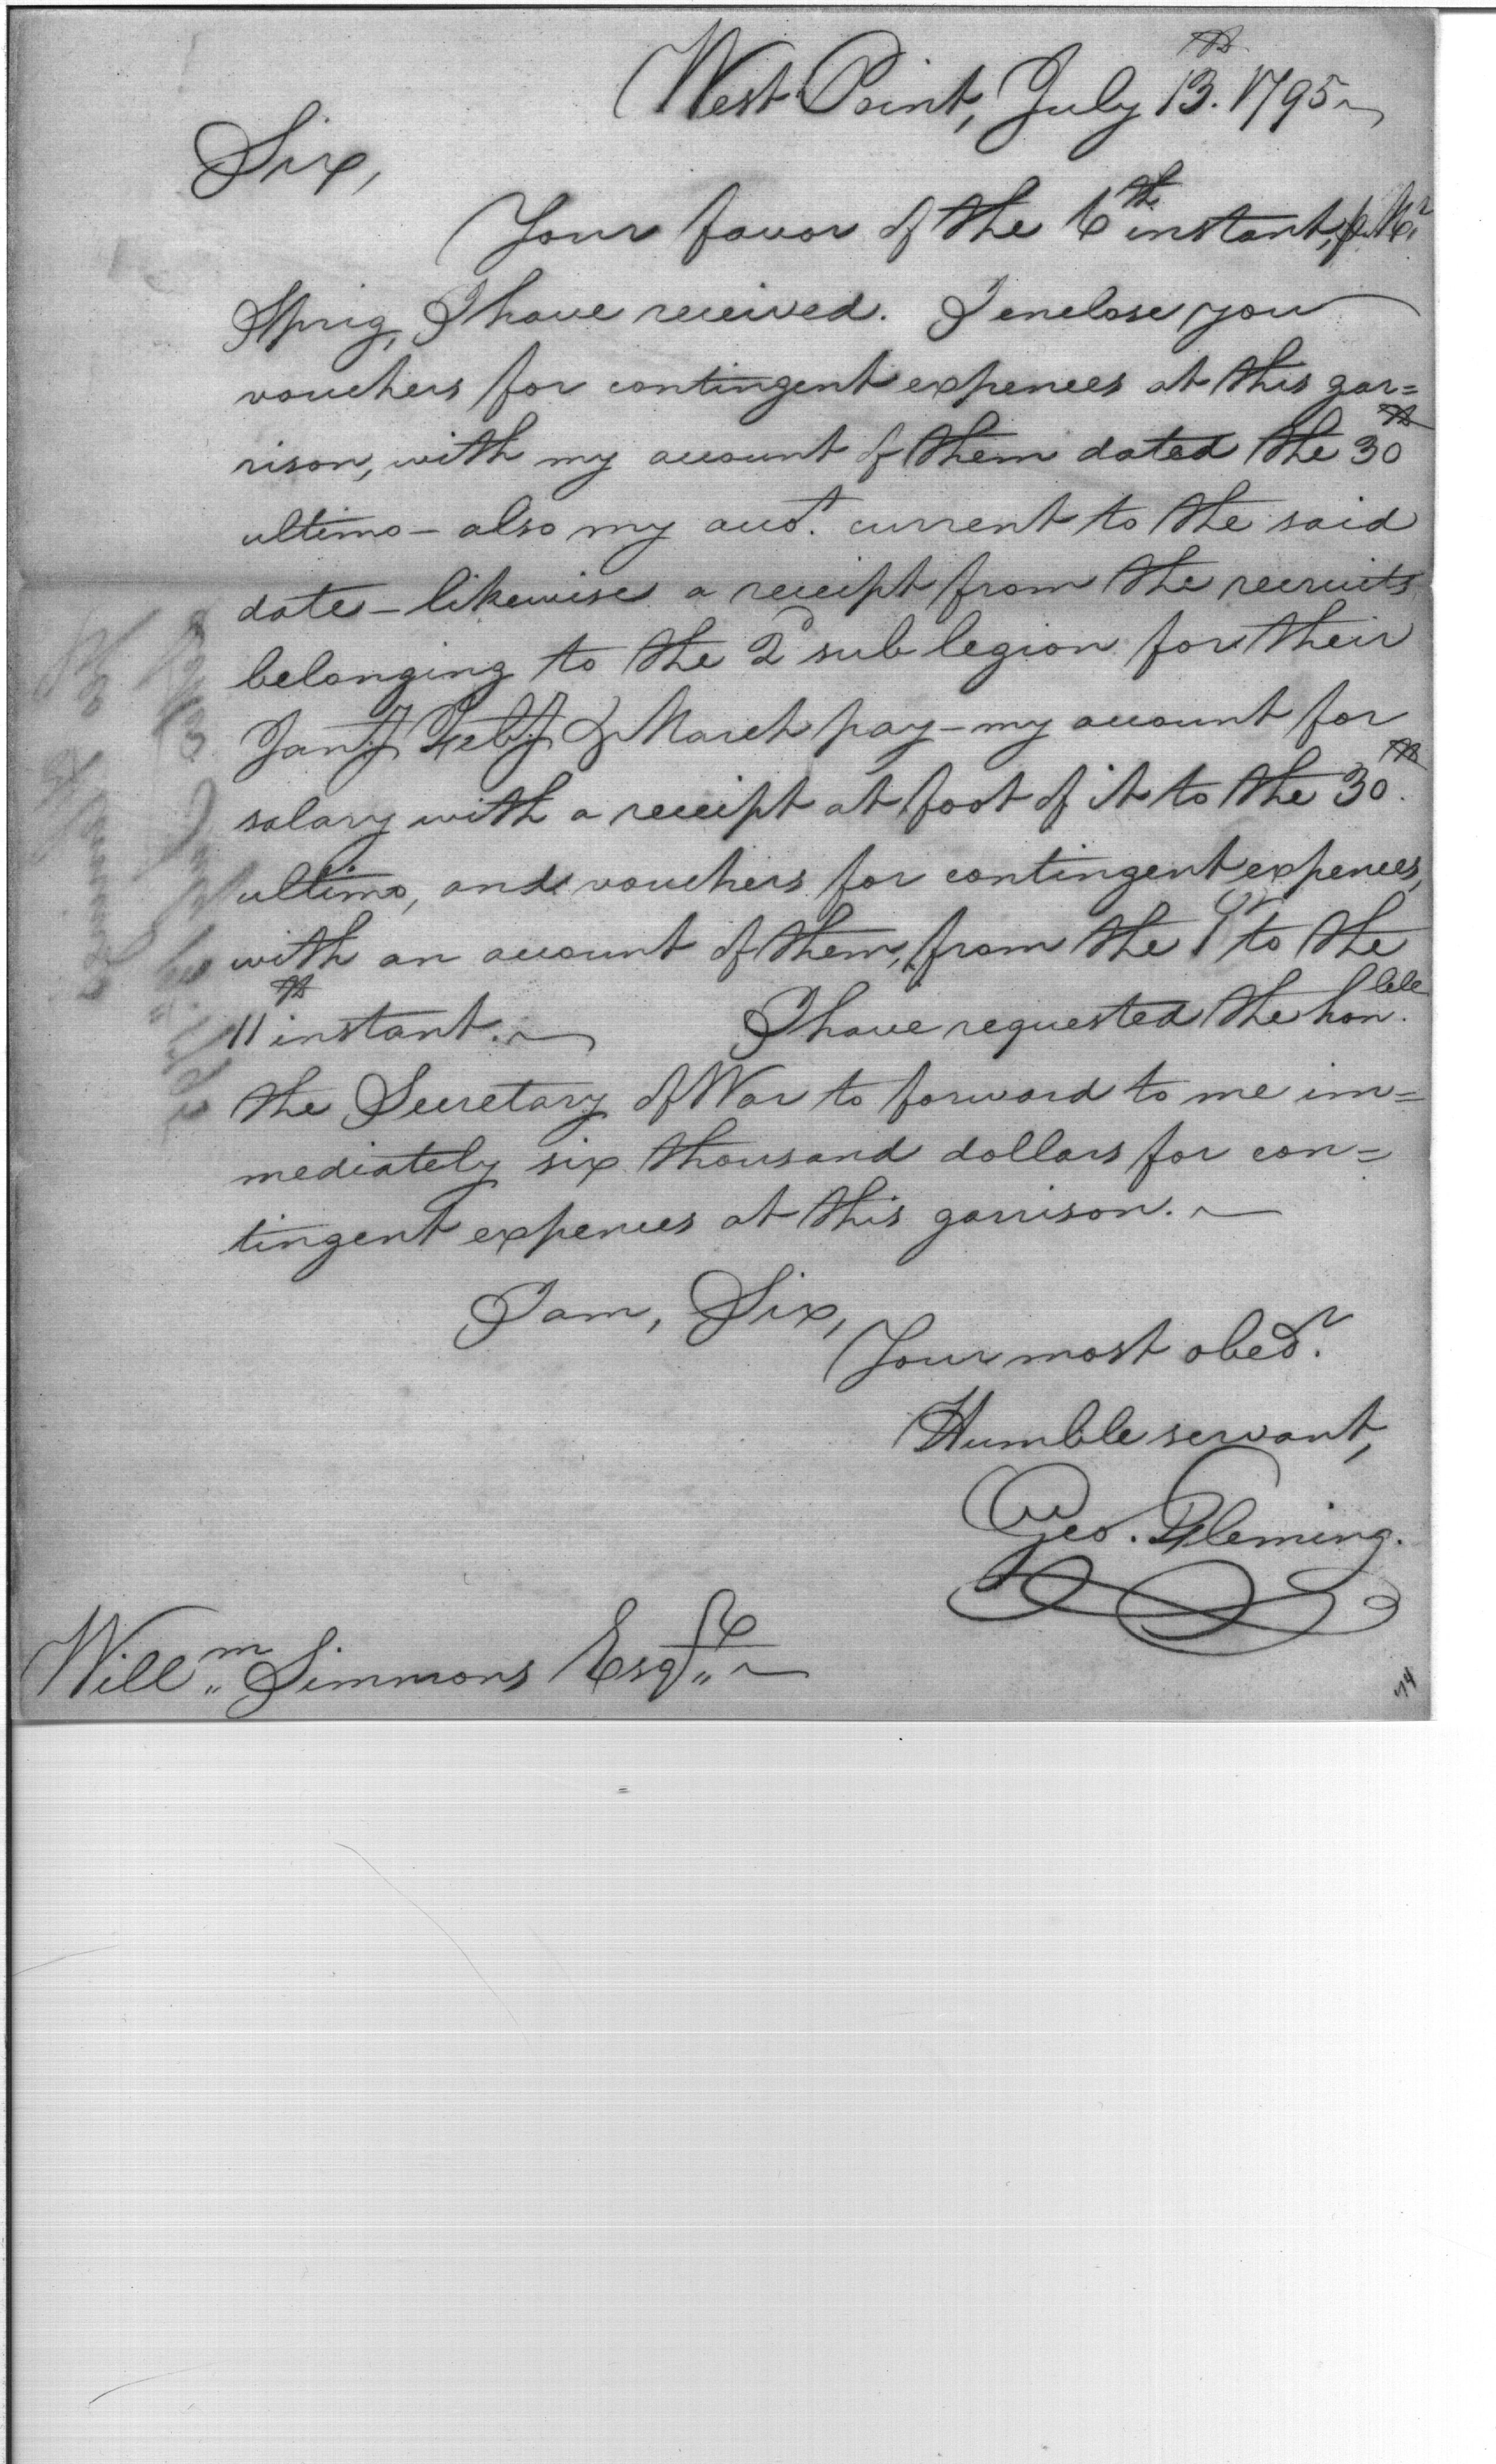 West Point, July 13th. 1795
Sir,
Your favor of the 6th instant, p. Mr.
Sprig, I have received. I enclose you
vouchers for contingent expences at this gar=
rison, with my account of them dated the 30th
ultimo - also my acct. current to the said
date - likewise a receipt from the recruits
belonging to the 2d sub legion for their
Jany. Feby. & March pay - my account for
salary with a receipt at foot of it to the 30th.
ultimo, and vouchers for contingent expences,
with an account of them, from the 1st to the
11th instant. I have requested the honble.
the Secretary of War to forward to me im=
mediately six thousand dollars for con=
tingent expences at this garrison.
I am, Sir,
Your most obedt.
Humble servant,
Geo. Fleming.
Willm. Simmons Esqr.
74